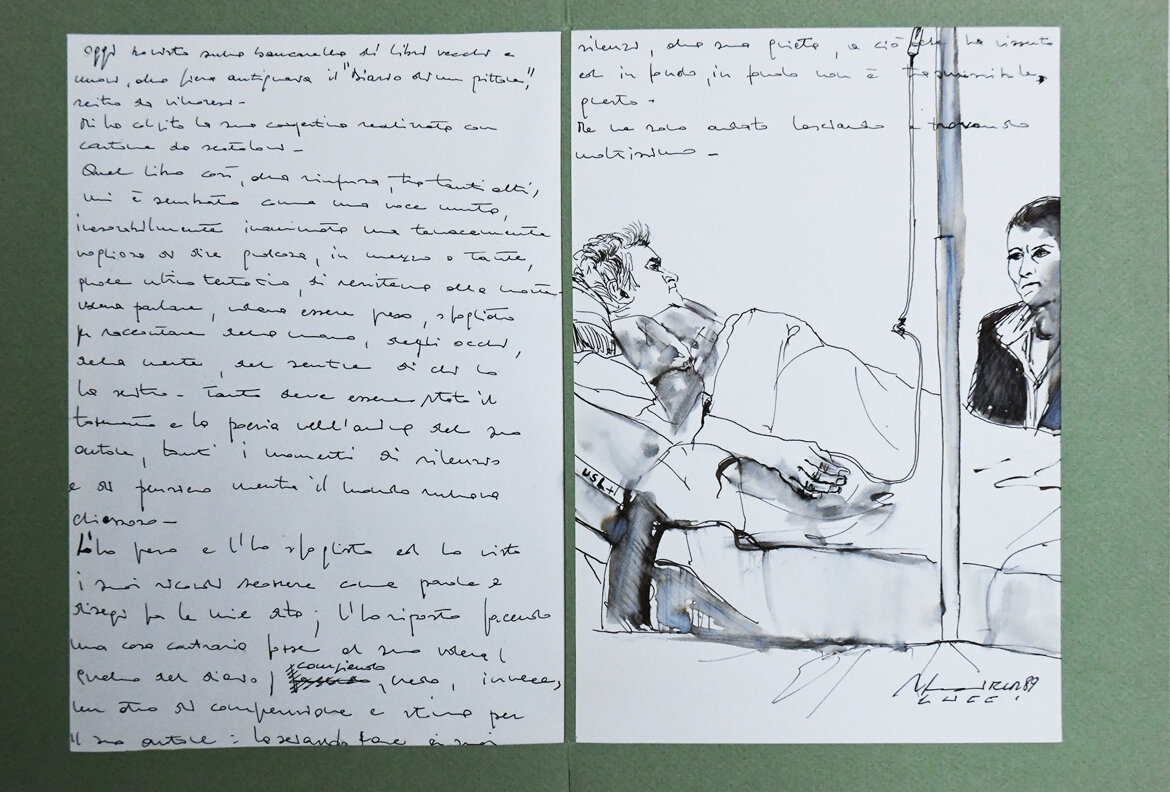 Oggi ho visto sulla bancarella di libri vecchi e
nuovi, alla fiera antiquaria il "Diario di un pittore",
scritto da
Mi ha colpito la sua copertina realizzata con
cartone da scatoloni -
Quel libro così, alla rinfusa, tra tanti altri,
mi è sembrato come una voce muta,
inesorabilmente tenacemente
vogliosa di dire qualcosa, in mezzo a tante,
quale ultimo tentativo, di resistenza alla morte
voleva parlare, voleva essere preso, sfogliato
per raccontare della mano, degli occhi,
della mente, del sentire di chi lo
ha scritto - Tanto deve essere stato il
tormento e la poesia nell'anima del suo
autore, tanti i momenti di silenzio
e di pensiero mentre il mondo
chiassoso -
L'ho preso e l'ho sfogliato ed ho visto
i suoi ricordi scorrere come parole e
disegni fra le mie dita; l'ho riposto facendo
una cosa contraria forse al suo volere (
quello del diario) compiendo, vero, invece,
un atto di comprensione e stima per
il suo autore: lasciando fare ai suoi
silenzi, alla sua quiete, a ciò che ha vissuto
ed in fondo, in fondo non è trasmissibile,
questo -
Me ne sono andato lasciando e trovando
moltissimo -
USL
89